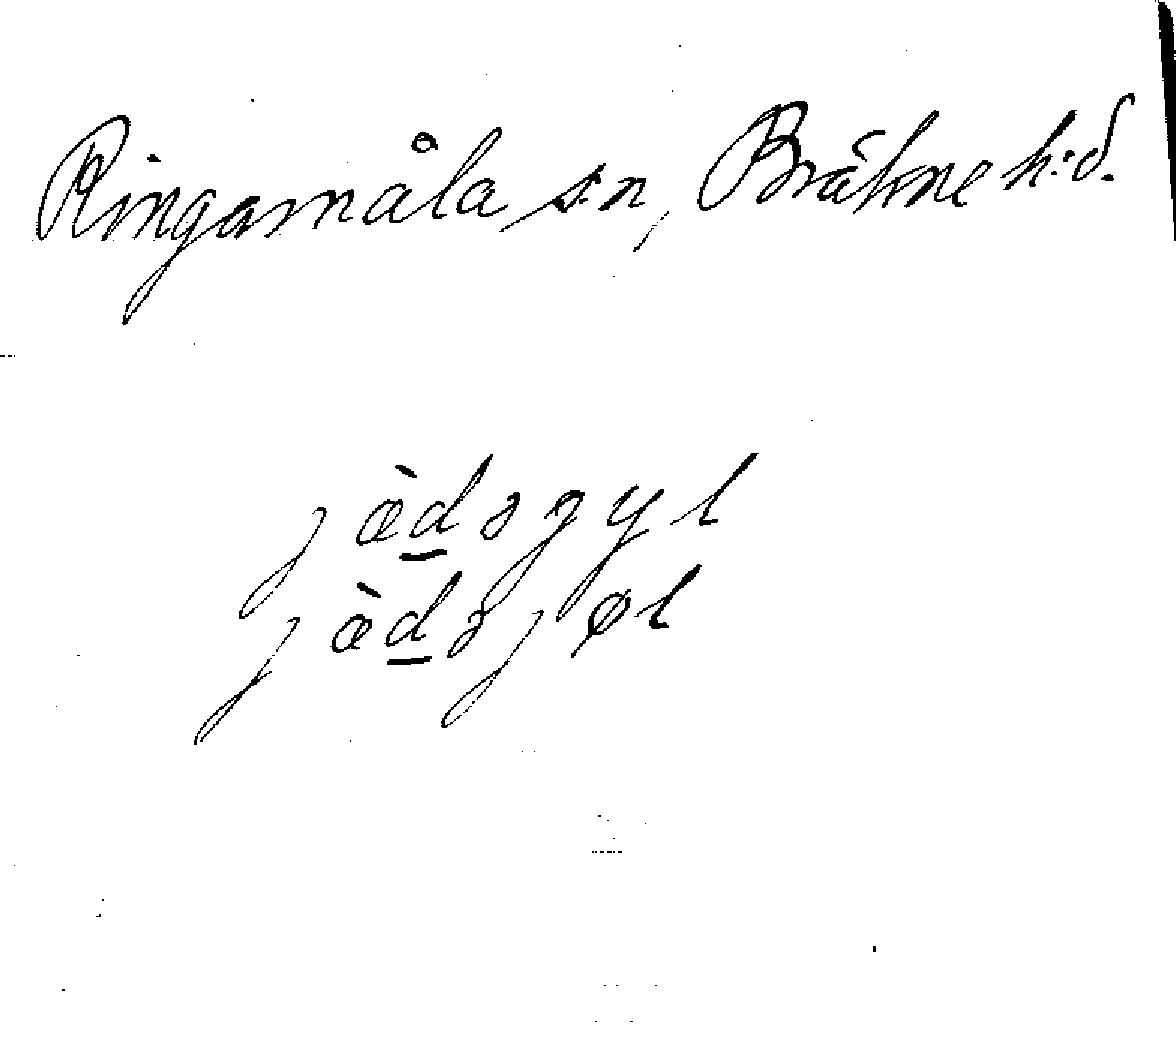 Ringamåla sn, Bräkne h:d.
jæ̀d̲əgyl
jæ̀d̲əjøl